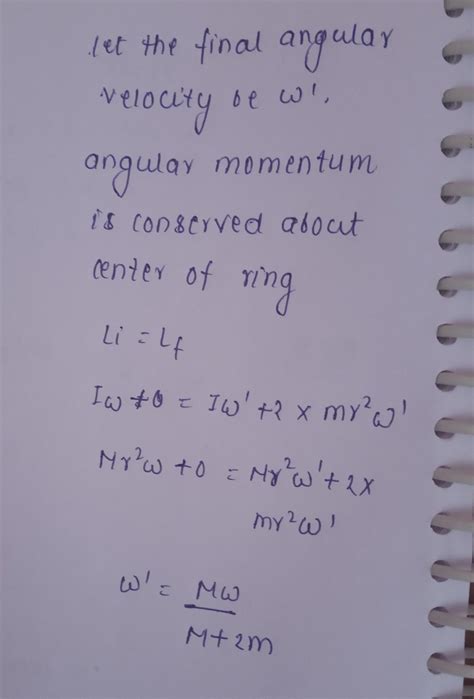 let the final angular
velocity be ω'.
angular momentum
is conserved about
center of ring
Li = Lf
Iω + 0 = Iω' + 2 × mr²ω'
Mr²ω + 0 = Mr²ω' + 2 ×
mr²ω'
ω' = Mω
M + 2m